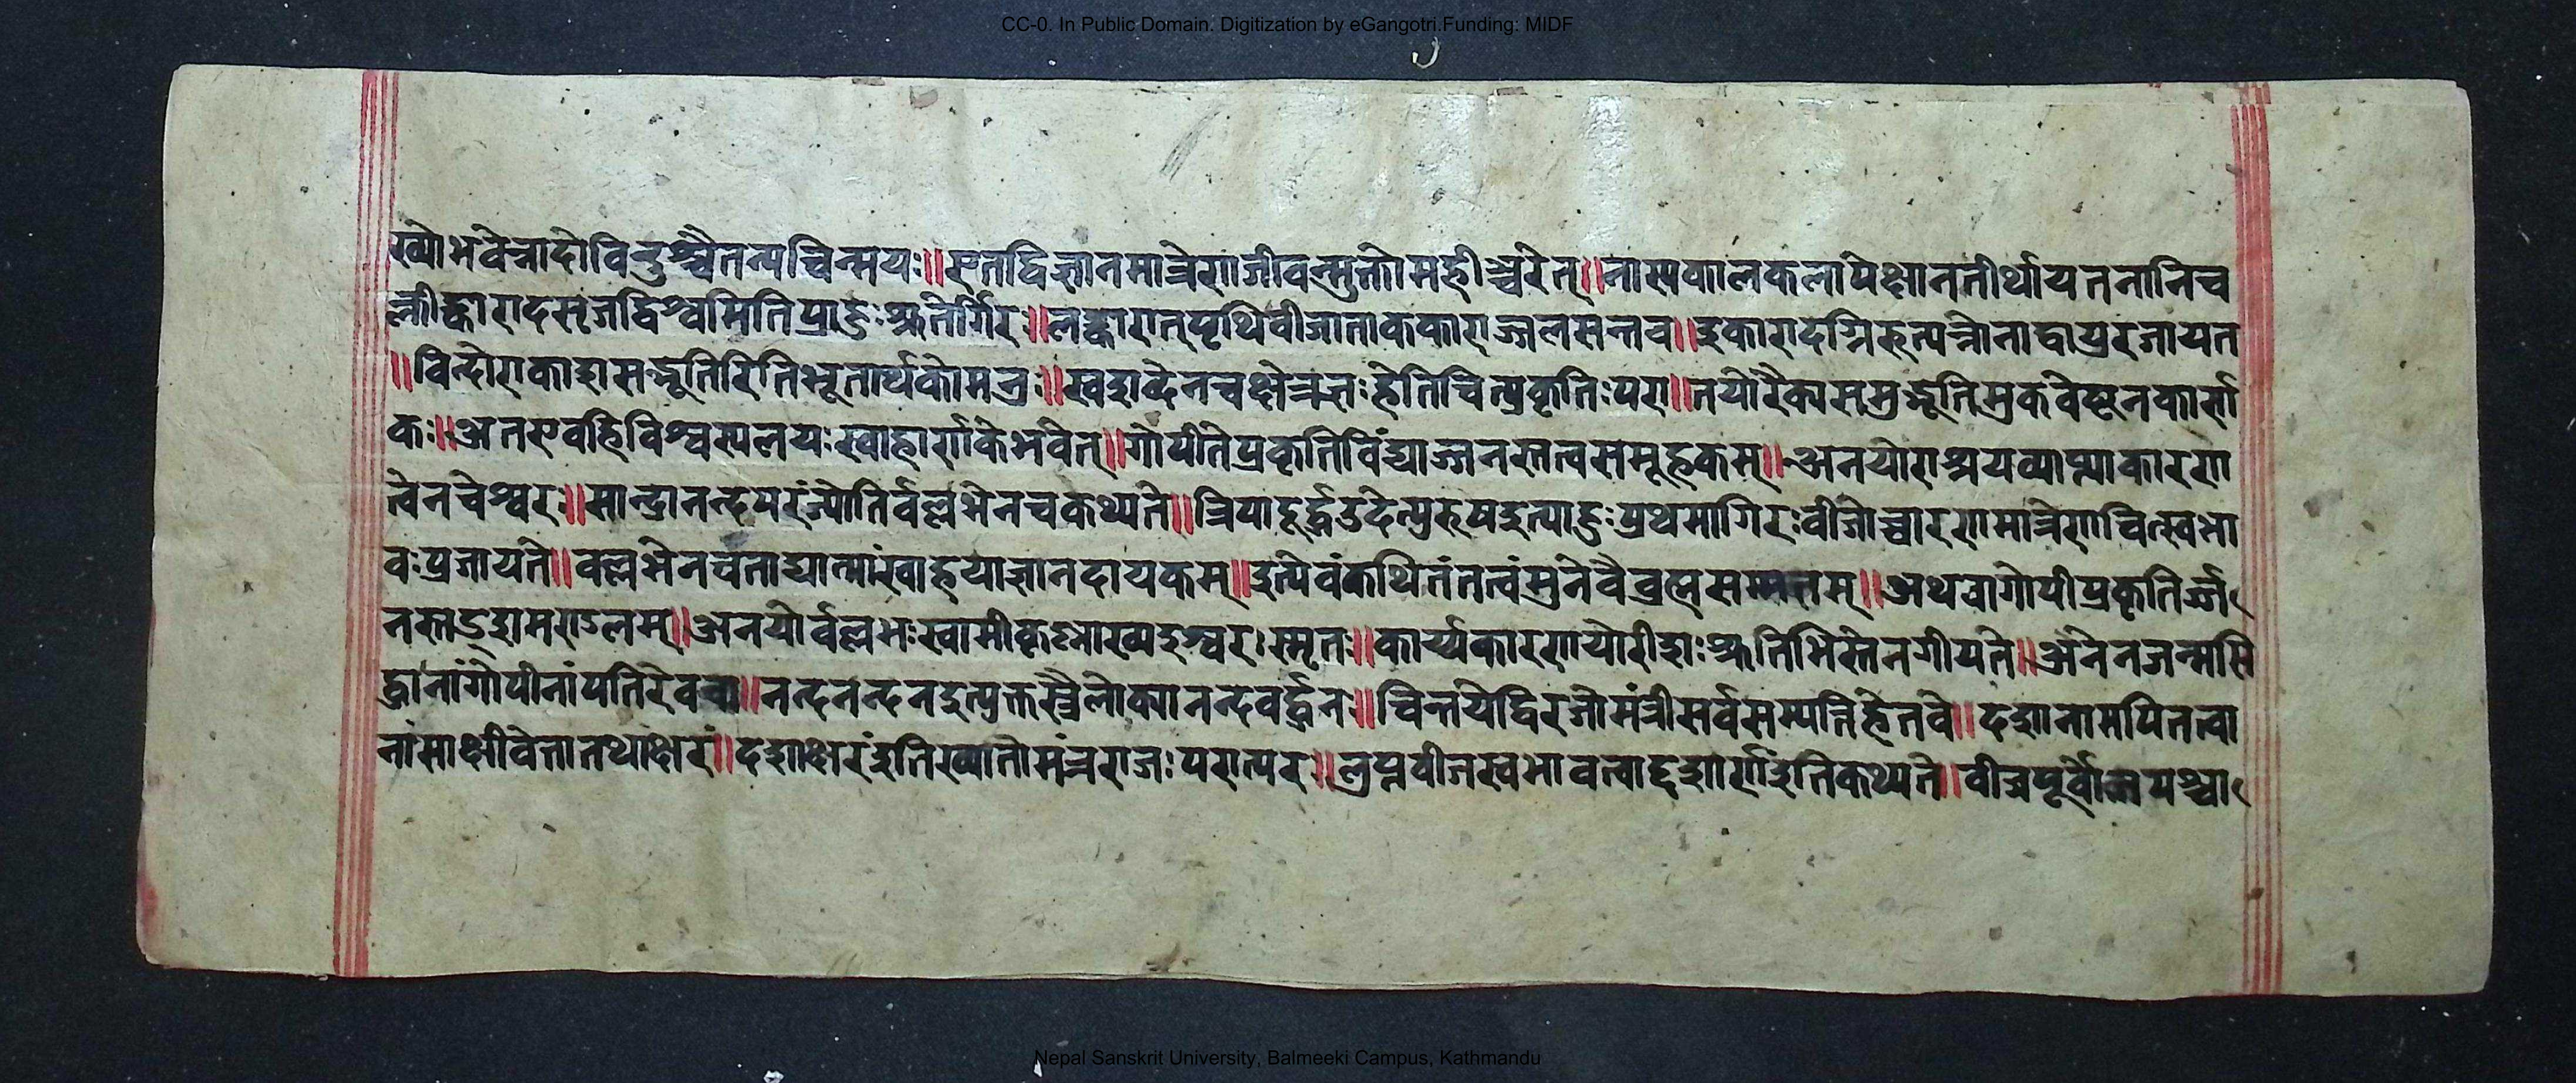 CC-0. In Public Domain. Digitization by eGangotri.Funding: MIDF
ख्योभवेन्नादोविन्दुश्चैतन्यचिन्मयः॥एतद्विज्ञानमात्रेणजीवन्मुक्तोमहीञ्चरेत्॥नास्यकालकलापेक्षानतीर्थायतनानिच
क्लीङ्कारादसृजद्विश्वमितिप्राहुःश्रुतेर्गिरः॥लङ्कारात्पृथिवीजाताककाराज्जलसन्तव॥इकारादग्निरुत्पन्नोनादाप्ररजायत
॥विन्दोराकाशसम्भूतिरितिभूतार्थकोमनुः॥स्वशब्देनचक्षेत्रज्ञःहेतिचित्प्रकृतिःपरा॥तयोरैक्यसमुद्भूतिमुकवेष्टनकार्सा
कः॥अतएवहिविश्वस्यलयःस्वाहार्णकेभवेत्॥गोपीतिप्रकृतिविंद्याज्जनस्तत्वसमूहकम्॥अनयोराश्रयव्याप्त्याकारण
त्वेनचेश्वरः॥सान्द्रानन्दपरंज्योतिर्वल्लभेनचकथ्यते॥त्रिपादूर्द्धउदेत्पुरुषइत्याहुःप्रथमागिरःवीजोच्चारणमात्रेणचित्स्वभा
वःप्रजायते॥वल्लभेनचताद्यात्म्यंस्वाहयाज्ञानदायकम्॥इत्येवंकथितंतत्वंमुनेवैब्रह्मसम्मतम्॥अथवागोपीप्रकृतिर्ज्ज
नस्तदंशमण्डलम्॥अनयोर्वल्लभःस्वामीकृष्णाख्यइश्वरःस्मृतः॥कार्य्यकारणयोरीशःश्रुतिभिस्तेनगीयते॥अनेनजन्मसि
द्धानांगोपीनांपतिरेववा॥नन्दनन्दनइत्युक्तस्त्रैलोक्यानन्दवर्द्धनः॥चिन्तयेद्विरजोमंत्रीसर्वसम्पत्तिहेतवे॥दशानामपितत्वा
नांसाक्षीवेत्तातथाक्षरं॥दशाक्षरंइतिख्यातोमंत्रराजःपरात्परः॥लुप्तवीजस्वभावत्वाद्दशार्णइतिकथ्यते॥वीजपूर्वोजपश्चा
Nepal Sanskrit University, Balmeeki Campus, Kathmandu